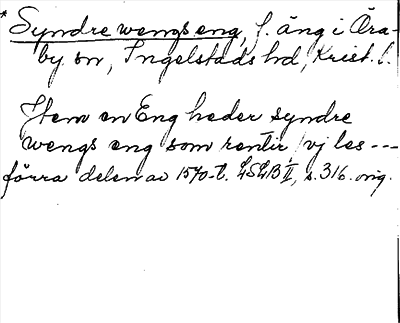 * Syndre wengs eng, f. äng i Öra-
by sn, Ingelstads hd, Krist. l.
Item en Eng heder syndre
wengs eng som rentir / vj les ---
förra delen av 1570-t. LSLB II, s. 316. orig.